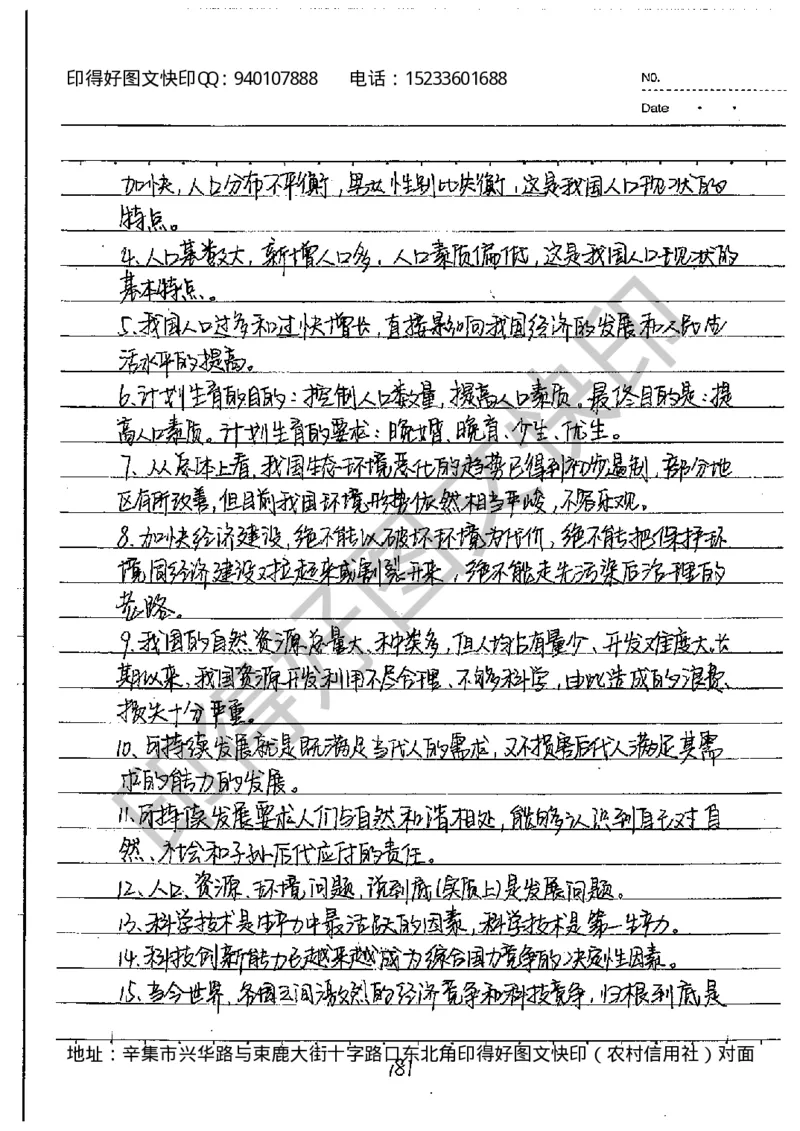 印得好图文快印QQ：940107888 电话：15233601688
NO.
Date
加快，人口分布不平衡，男女性别比失衡，这是我国人口现状的
特点。
4、人口基数大，新增人口多，人口素质偏低，这是我国人口现状的
基本特点。
5、我国人口过多和过快增长，直接影响我国经济的发展和人民生
活水平的提高。
6、计划生育的目的：控制人口数量，提高人口素质。最终目的是：提
高人口素质。计划生育的要求：晚婚、晚育、少生、优生。
7、从总体上看，我国生态环境恶化的趋势已得到初步遏制，部分地
区有所改善，但目前我国环境形势依然相当严峻，不容乐观。
8、加快经济建设，绝不能以破坏环境为代价，绝不能把保护环
境同经济建设对立起来或割裂开来，绝不能走先污染后治理的
老路。
9、我国的自然资源总量大、种类多，但人均占有量少、开发难度大。长
期以来，我国资源开发利用不尽合理、不够科学，由此造成的浪费、
损失十分严重。
10、可持续发展就是既满足当代人的需求，又不损害后代人满足其需
求的能力的发展。
11、可持续发展要求人们与自然和谐相处，能够认识到自己对自
然、社会和子孙后代应付的责任。
12、人口、资源、环境问题，说到底（实质上）是发展问题。
13、科学技术是生产力中最活跃的因素，科学技术是第一生产力。
14、科技创新能力已越来越成为综合国力竞争的决定性因素。
15、当今世界，各国之间激烈的经济竞争和科技竞争，归根到底是
地址：辛集市兴华路与束鹿大街十字路口东北角印得好图文快印（农村信用社）对面
181
印得好图文快印